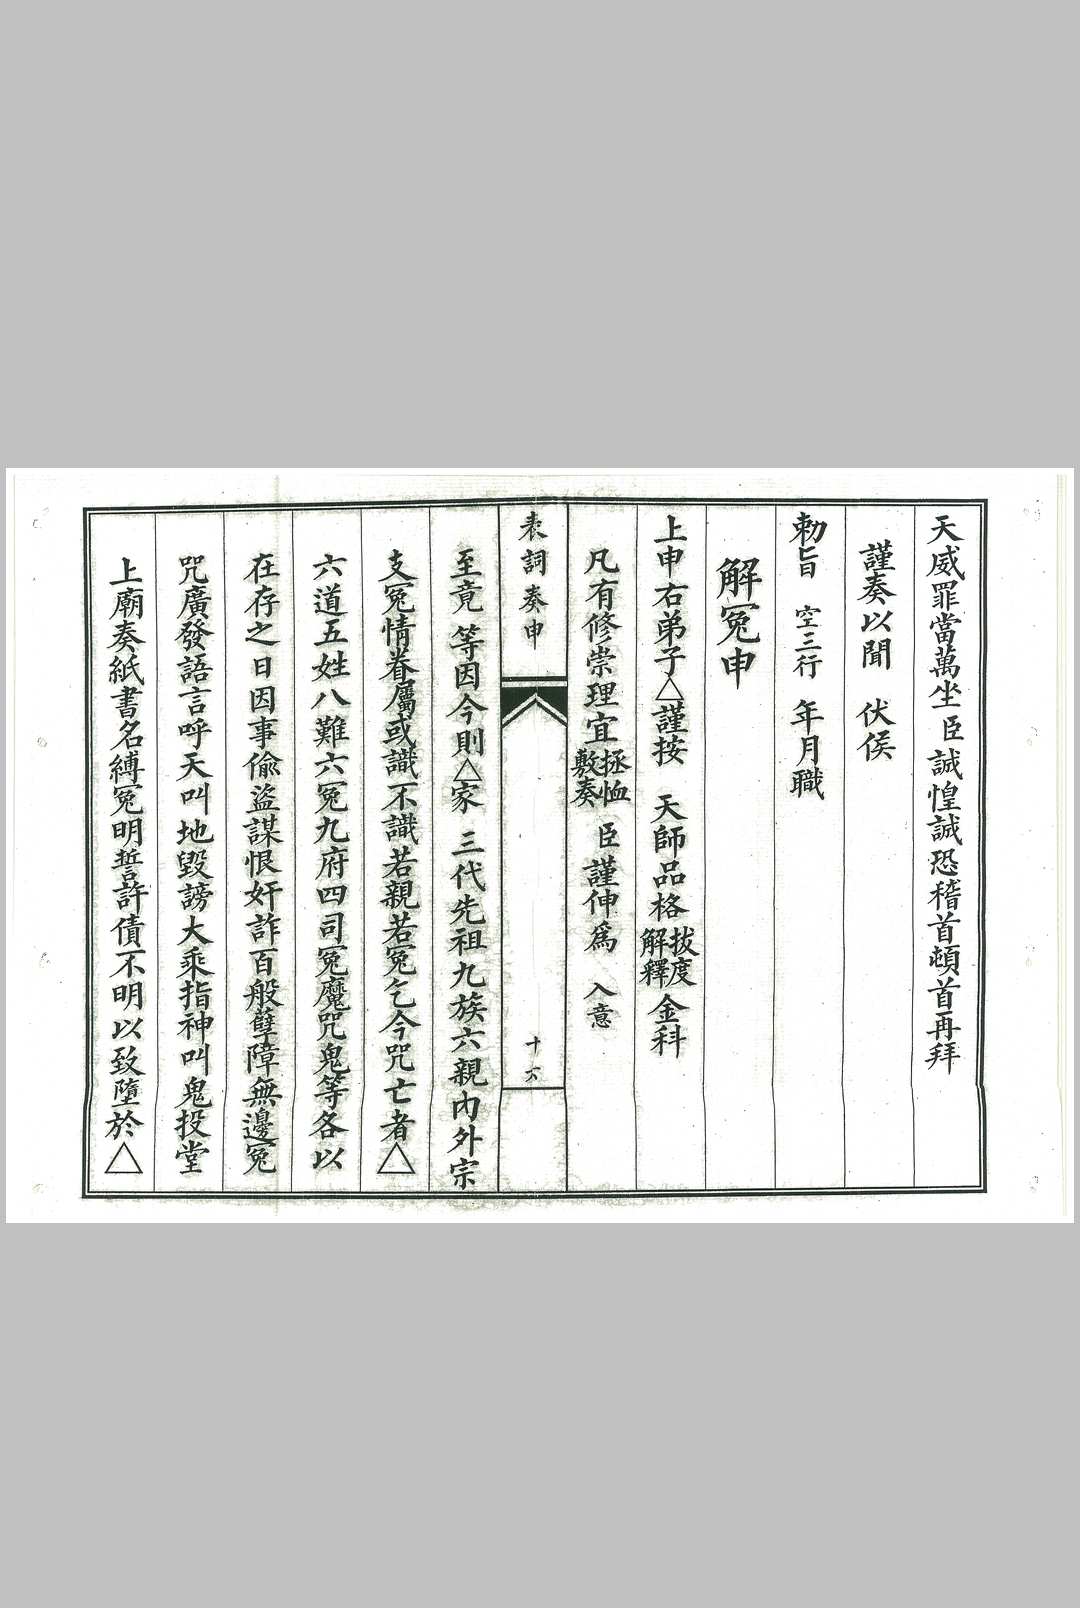 天威罪當萬坐臣誠惶誠恐稽首頓首再拜
謹奏以聞　伏俟
勅旨　空三行　年月職
解冤申
上申右弟子△謹按　天師品格拔度解釋金科
凡有修崇理宜拯恤敷奏　臣謹伸為　入意
表詞奏申
十六
至竟　等因今則△家　三代先祖九族六親內外宗
支冤情眷屬或識不識若親若冤乞今咒亡者△
六道五姓八難六冤九府四司冤魔咒鬼等各以
在存之日因事偷盜謀恨奸詐百般孽障無邊冤
咒廣發語言呼天叫地毀謗大乘指神叫鬼投堂
上廟奏紙書名縛冤明誓許債不明以致墮於△